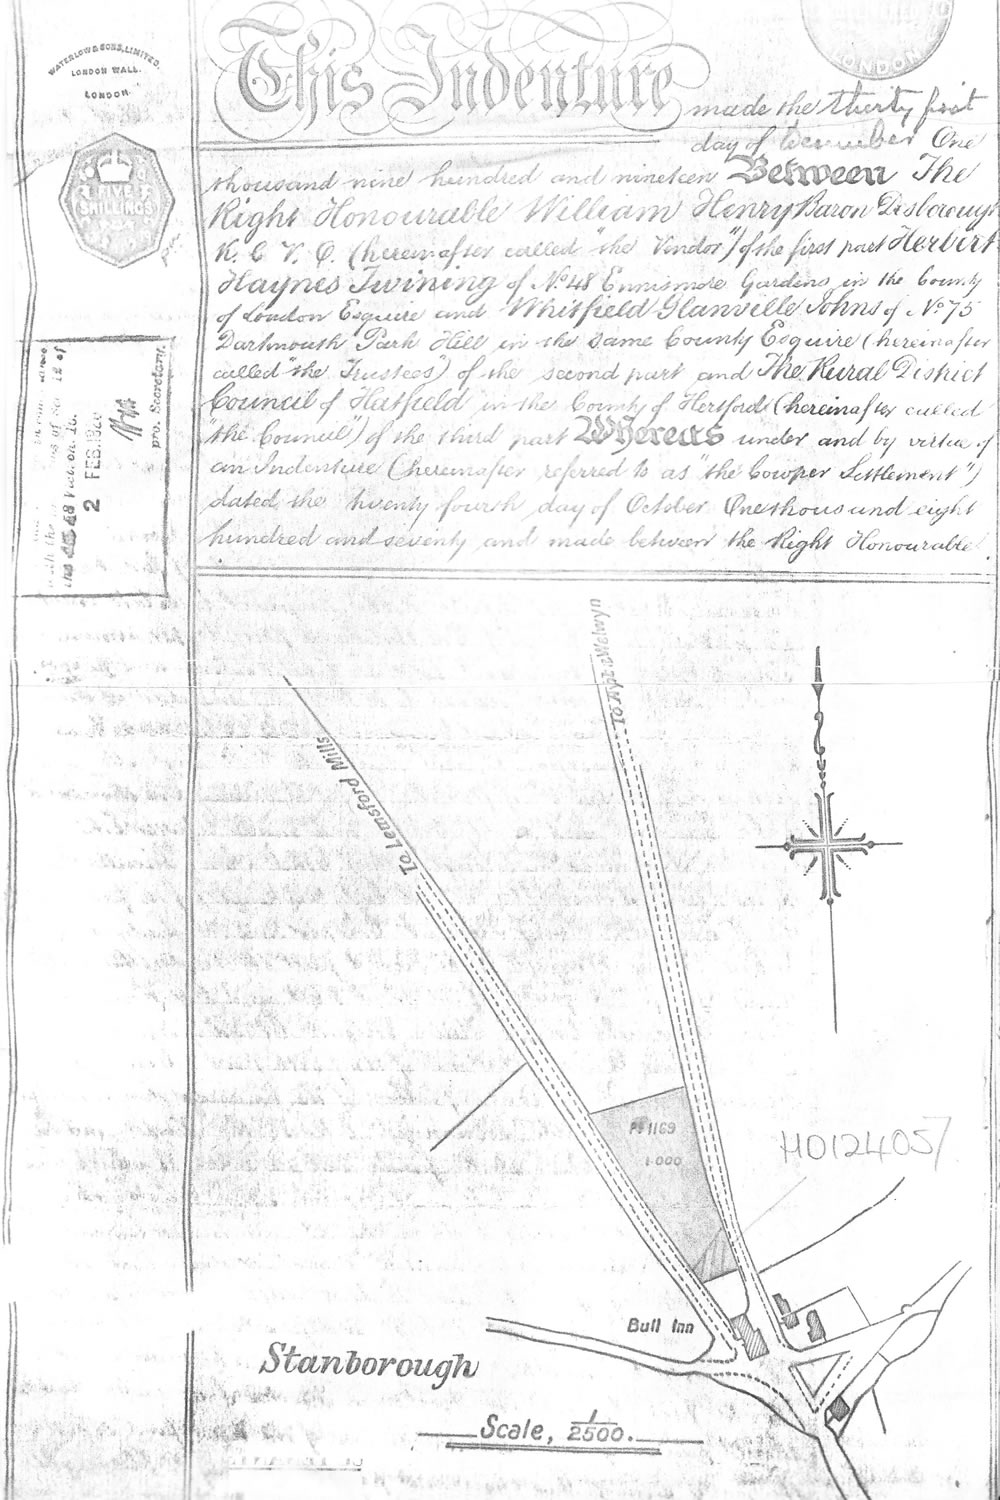 WATERLOW & SONS, LIMITED.
LONDON WALL.
LONDON.
FIVE
SHILLINGS
LONDON
This Indenture made the thirty first
day of December One
thousand nine hundred and nineteen Between The
Right Honourable William Henry Baron Desborough
K. C. V. O. (hereinafter called "the Vendor") of the first part Herbert
Haynes Twining of No 48 Ennismore Gardens in the County
of London Esquire and Whitfield Glanville Johns of No 75
Dartmouth Park Hill in the same County Esquire (hereinafter
called "the Trustees") of the second part and The Rural District
Council of Hatfield in the County of Hertford (hereinafter called
"the Council") of the third part Whereas under and by virtue of
an Indenture (hereinafter referred to as "the Cowper Settlement")
dated the twenty fourth day of October One thousand eight
hundred and seventy and made between the Right Honourable
2 FEB.
pro. Secretary.
To Lemsford Mills
To Welwyn
1169
1·000
HD12405
Bull Inn
Stanborough
Scale, 1/2500.